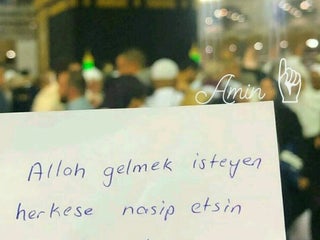 Amin
Allah gelmek isteyen
herkese nasip etsin